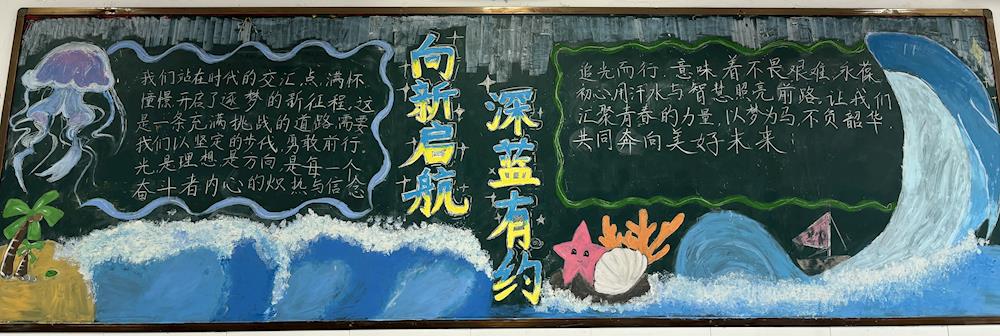 我们站在时代的交汇点,满怀
憧憬开启了逐梦的新征程,这
是一条充满挑战的道路,需要
我们以坚定的步伐,勇敢前行,
光,是理想,是方向,是每一个
奋斗者内心的炽热与信念
向新启航
深蓝有约
追光而行,意味着不畏艰难,永葆
初心,用汗水与智慧照亮前路,让我们
汇聚青春的力量,以梦为马,不负韶华,
共同奔向美好未来!